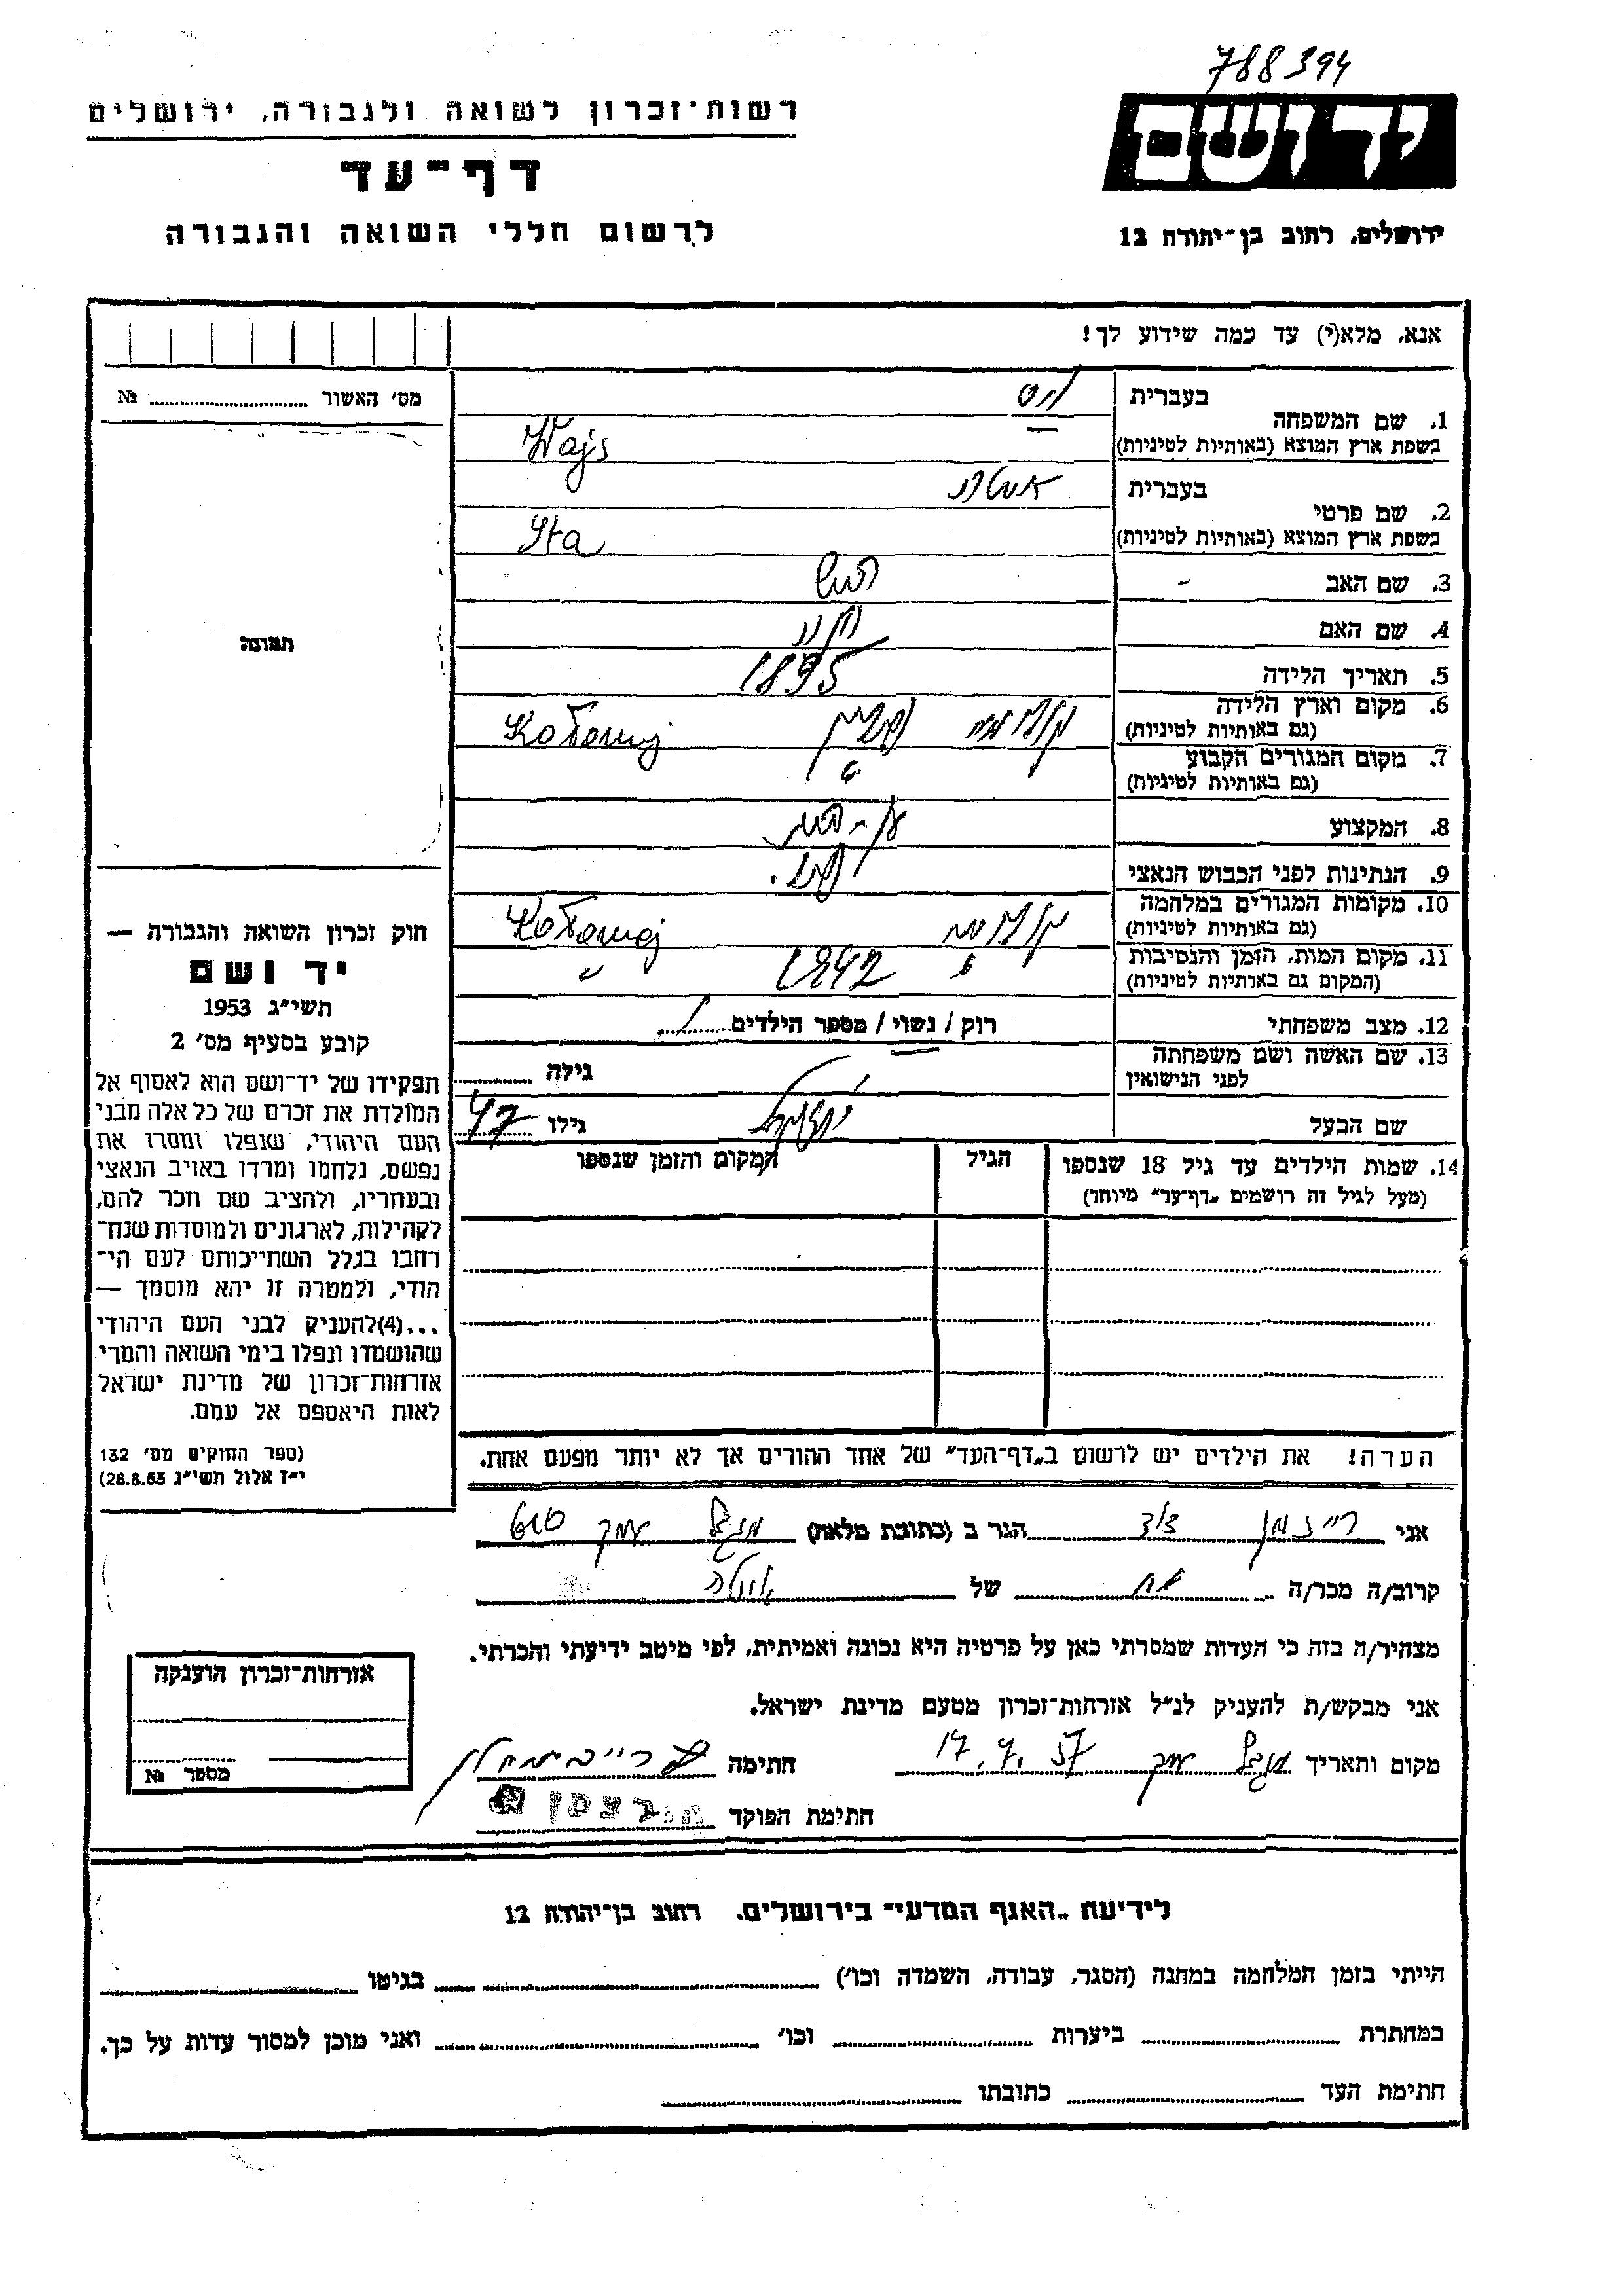 788394
רשות־זכרון לשואה ולגבורה, ירושלים
יד ושם
דף־עד
לרשום חללי השואה והגבורה
ירושלים, רחוב בן־יהודה 12
אנא, מלא(י) עד כמה שידוע לך!
מס׳ האשור № 
תמונה
חוק זכרון השואה והגבורה —
יד ושם
תשי״ג 1953
קובע בסעיף מס׳ 2
תפקידו של יד־ושם הוא לאסוף אל
המולדת את זכרם של כל אלה מבני
העם היהודי, שנפלו ומסרו את
נפשם, נלחמו ומרדו באויב הנאצי
ובעוזריו, ולהציב שם וזכר להם,
לקהילות, לארגונים ולמוסדות שנח־
רחבו בגלל השתייכותם לעם הי־
הודי, ולמטרה זו יהא מוסמך —
...(4)להעניק לבני העם היהודי
שהושמדו ונפלו בימי השואה והמרי
אזרחות־זכרון של מדינת ישראל
לאות היאספם אל עמם.
(ספר החוקים מס׳ 132
י״ז אלול תשי״ג 28.8.53)
1. שם המשפחה בעברית וייס
בשפת ארץ המוצא (באותיות לטיניות) Wajs
2. שם פרטי בעברית
בשפת ארץ המוצא (באותיות לטיניות) Ita
3. שם האב
4. שם האם
5. תאריך הלידה 1895
6. מקום וארץ הלידה (גם באותיות לטיניות) קולומיי פולין Kołomyj
7. מקום המגורים הקבוע (גם באותיות לטיניות) "
8. המקצוע עק-בית
9. הנתינות לפני הכבוש הנאצי פולני
10. מקומות המגורים במלחמה (גם באותיות לטיניות) קולומיי Kołomyj
11. מקום המות, הזמן והנסיבות (המקום גם באותיות לטיניות) " 1942 "
12. מצב משפחתי רוק / נשוי / מספר הילדים
13. שם האשה ושם משפחתה לפני הנישואין גילה
שם הבעל גילו 47
14. שמות הילדים עד גיל 18 שנספו הגיל המקום והזמן שנספו
(מעל לגיל זה רושמים „דף־עד״ מיוחד)
הערה! את הילדים יש לרשום ב„דף־העד״ של אחד ההורים אך לא יותר מפעם אחת.
אני רייזמן הגר ב (כתובת מלאה) מגדל עמק
קרוב/ה מכר/ה של
מצהיר/ה בזה כי העדות שמסרתי כאן על פרטיה היא נכונה ואמיתית, לפי מיטב ידיעתי והכרתי.
אני מבקש/ת להעניק לנ״ל אזרחות־זכרון מטעם מדינת ישראל.
מקום ותאריך מגדל עמק 17.4.57 חתימה
חתימת הפוקד
אזרחות־זכרון הוענקה
מספר №
לידיעת „האגף המדעי״ בירושלים. רחוב בן־יהודה 12
הייתי בזמן המלחמה במחנה (הסגר, עבודה, השמדה וכו׳) בגיטו
במחתרת ביערות וכו׳ ואני מוכן למסור עדות על כך.
חתימת העד כתובתו